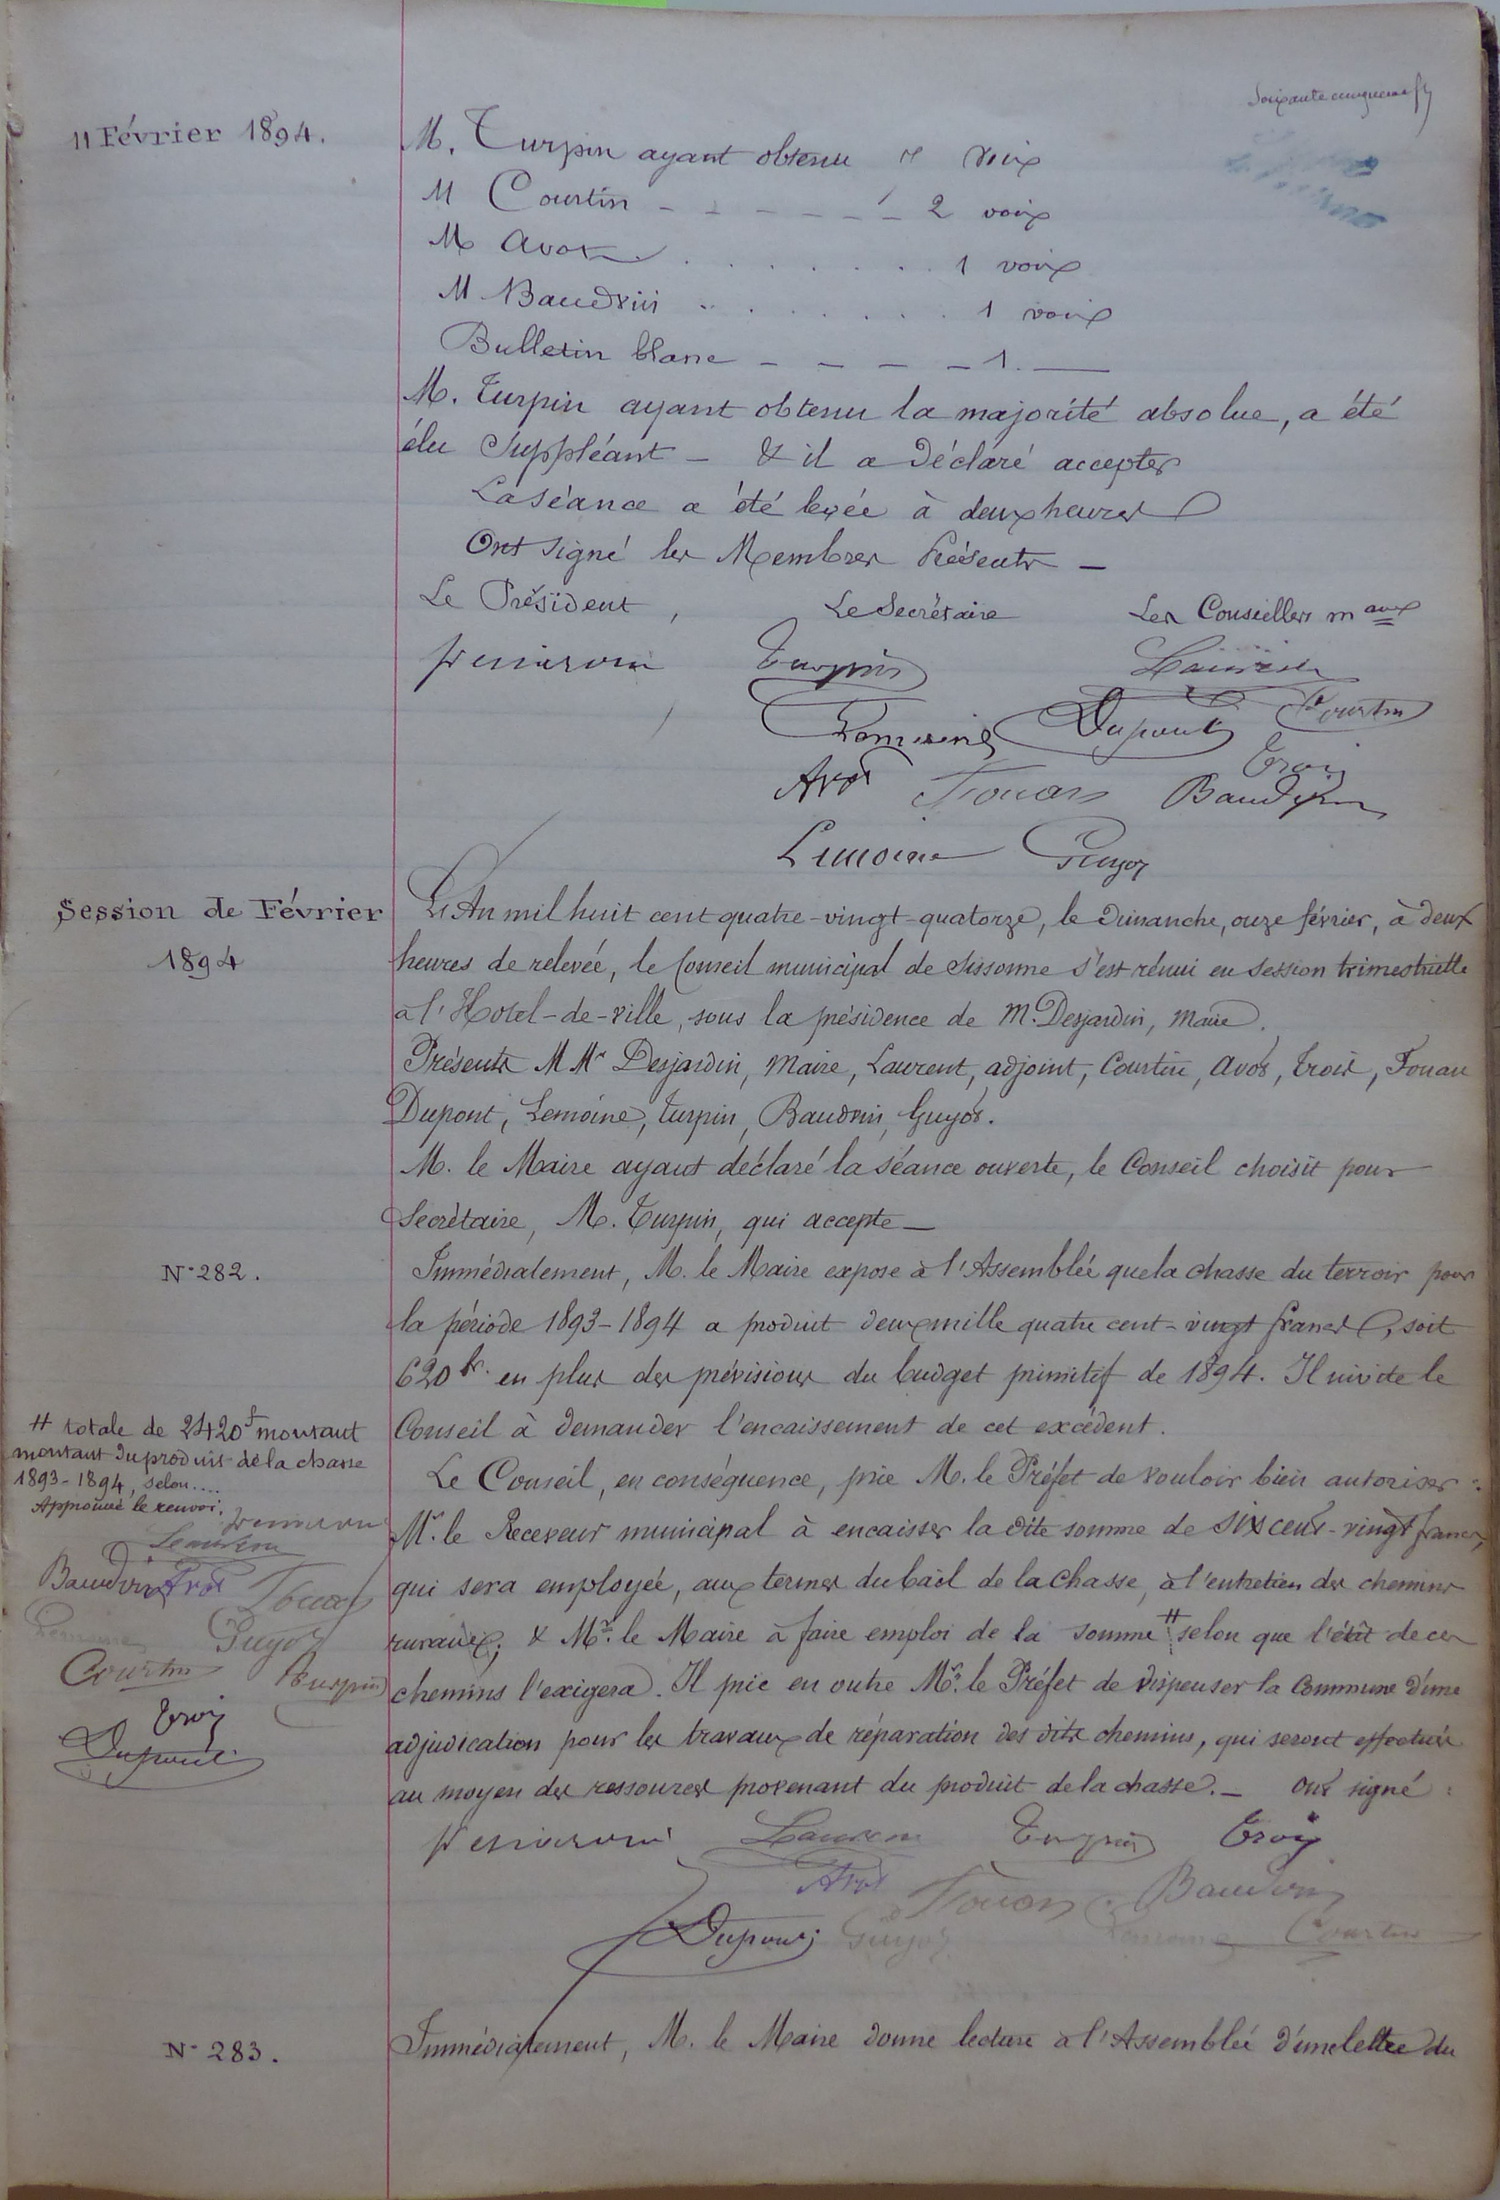 11 Février 1894.
M. Turpin ayant obtenu voix
M Courtin - - - - - - 2 voix
M Avot . . . . . . . 1 voix
M Baudvin . . . . . . . 1 voix
Bulletin blanc - - - - 1. —
M. Turpin ayant obtenu la majorité absolue, a été
élu Suppléant - & il a déclaré accepter
La séance a été levée à deux heures
Ont signé les Membres Présents -
Le Président, Le Secrétaire Les Conseillers maux
Turpin Laurent
Lemoine Dupont Courtin
Avot Fouan Trois Baudvin
Lemoine Guyot
Session de Février
1894
L'An mil huit cent quatre-vingt-quatorze, le Dimanche, onze février, à deux
heures de relevée, le Conseil municipal de Sissonne s'est réuni en session trimestrielle
à l'Hotel-de-ville, sous la présidence de M. Desjardin, maire.
Présents M Mrs Desjardin, maire, Laurent, adjoint, Courtin, Avot, Trois, Fouan
Dupont, Lemoine, Turpin, Baudvin, Guyot.
M. le Maire ayant déclaré la séance ouverte, le Conseil choisit pour
Secrétaire, M. Turpin, qui accepte -
N° 282.
Immédiatement, M. le Maire expose à l'Assemblée que la chasse du terroir pour
la période 1893-1894 a produit deux mille quatre cent-vingt francs, soit
620 fr. en plus des prévisions du budget primitif de 1894. Il invite le
Conseil à demander l'encaissement de cet excédent.
Le Conseil, en conséquence, prie M. le Préfet de vouloir bien autoriser :
Mr. le Receveur municipal à encaisser la dite somme de six cent-vingt francs,
qui sera employée, aux termes du bail de la chasse, à l'entretien des chemins
ruraux; & Mr. le Maire à faire emploi de la somme # selon que l'état de ces
chemins l'exigera. Il prie en outre Mr. le Préfet de dispenser la Commune d'une
adjudication pour les travaux de réparation des dits chemins, qui seront effectués
au moyen des ressources provenant du produit de la chasse. - Ont signé :
# totale de 2420f montant
montant du produit de la chasse
1893-1894, selon....
Approuvé le renvoi.
Laurent
Baudvin Avot Fouan
Lemoine Guyot
Courtin Turpin
Trois
Dupont
Laurent Turpin Trois
Avot Fouan Baudvin
Dupont Guyot Lemoine Courtin
N° 283.
Immédiatement, M. le Maire donne lecture à l'Assemblée d'une lettre du